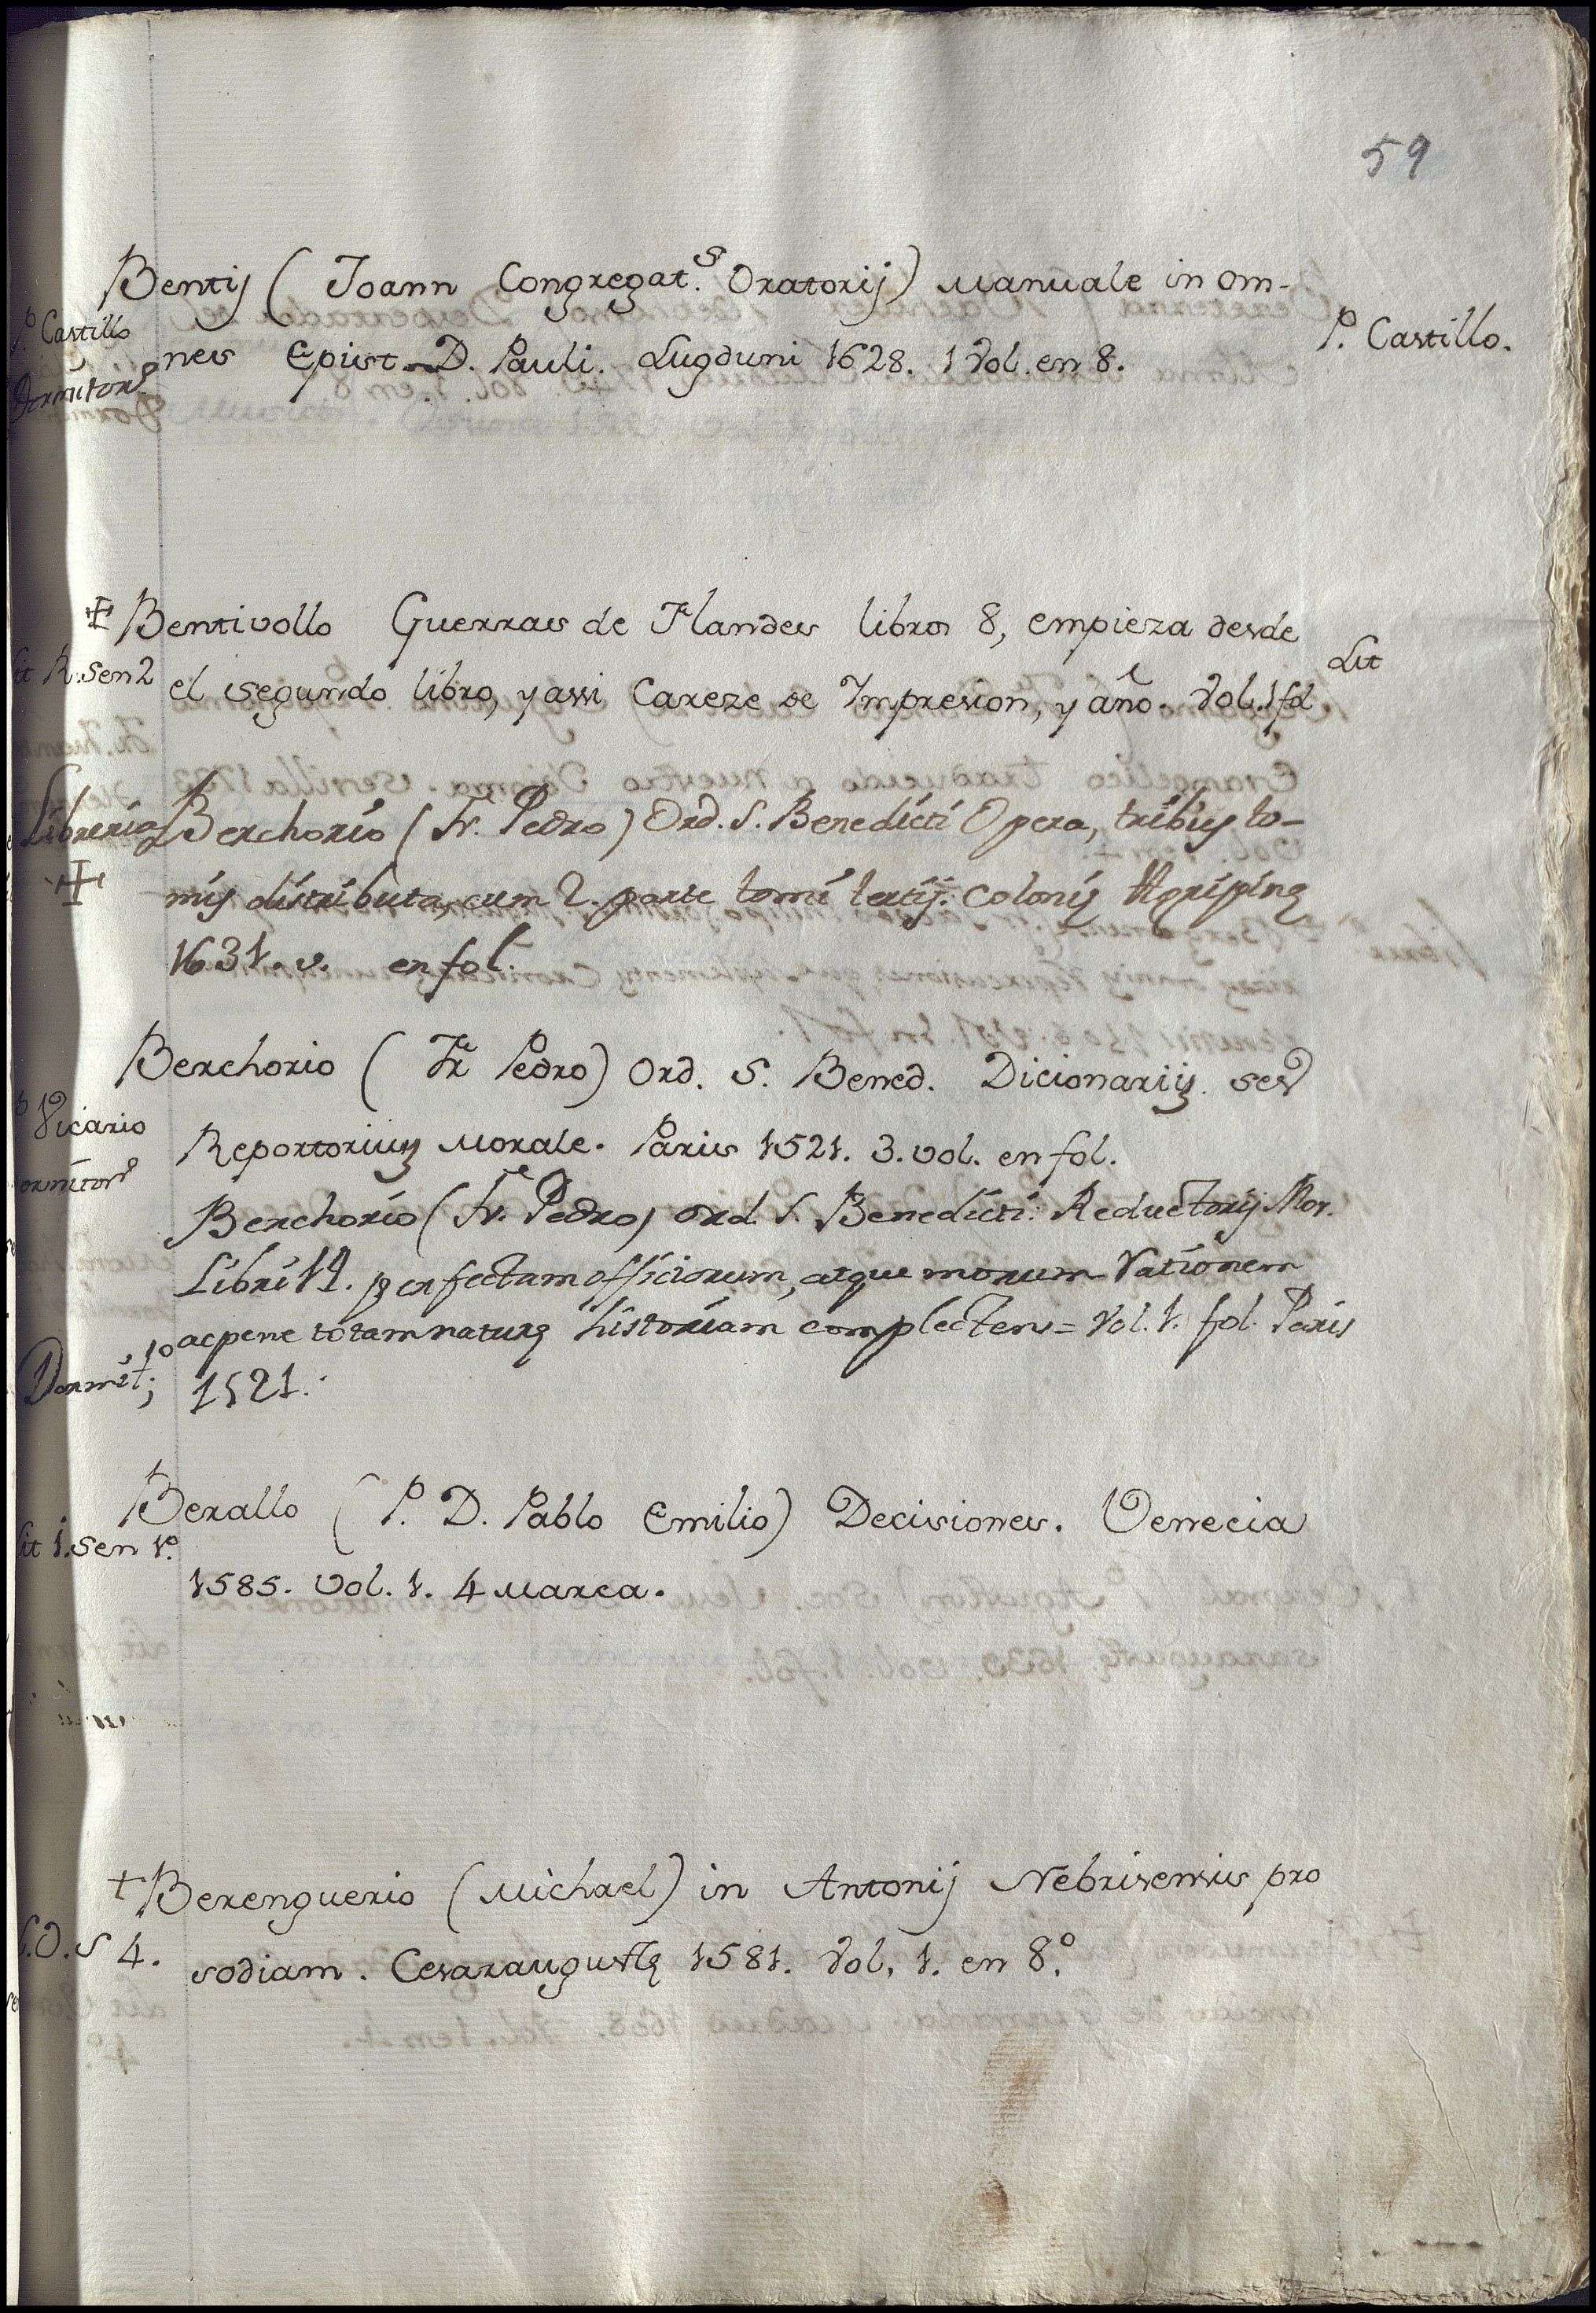 59
Bentij (Joann Congregat.s Oratorij) Manuale in om-
P. Castillo
Dormitor.o
nes Epist. D. Pauli. Lugduni 1628. 1 Vol. en 8.
P. Castillo.
Bentivollo Guerras de Flandes libros 8, empieza desde
Lit
lit R. sen 2
el segundo libro, y assi Careze de Impresion, y año. Vol. 1 fol
Libreria Berchorio (Fr. Pedro) Ord. S. Benedicti Opera, tribus to-
mis distributa, cum 2. parte tomi tertij. Colonię Agripinę
1631. v. en fol.
Berchorio (Fr Pedro) Ord. S. Bened. Dicionarij seu
P Vicario
ormitor.o
Reportorium Morale. Paris 1521. 3. vol. en fol.
Berchorio (Fr. Pedro) Ord. S. Benedicti: Reductorij Mor.
Libri 14. perfectam officiorum, atque morum rationem
ac pene totam naturę historiam complectens = Vol. 1. fol. Paris
Dormit.io;
1521.
Berallo (P. D. Pablo Emilio) Decisiones. Venecia
lit 1. sen 1.o
1585. Vol. 1. 4 Marca.
+ Berenguerio (Michael) in Antonij Nebrisensis pro
S 4.
sodiam. Cesaraugustę 1581. Vol. 1. en 8.o